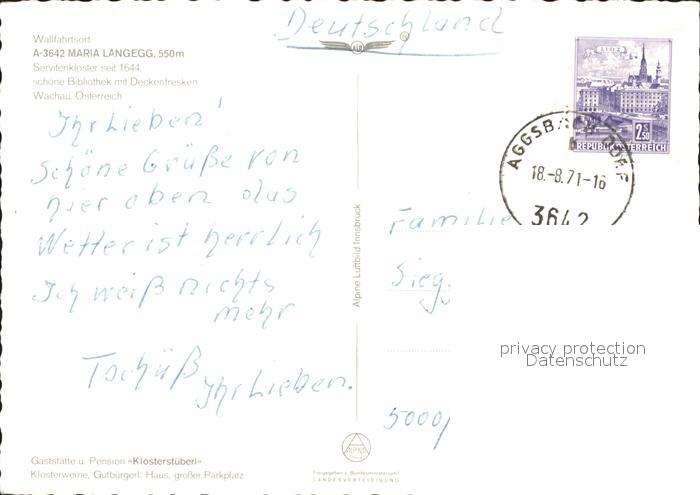 Deutschland
Wallfahrtsort
A-3642 MARIA LANGEGG, 550m
Servitenkloster seit 1644,
schöne Bibliothek mit Deckenfresken.
Wachau, Österreich
Ihr Lieben!
Schöne Grüße von
hier oben das
Wetter ist herrlich
Ich weiß nichts
mehr
Tschüß
Ihr Lieben.
Gaststätte u. Pension »Klosterstüberl«
Klosterweine, Gutbürgerl. Haus, großer Parkplatz
Alpine Luftbild Innsbruck
ALPINE
Freigegeben v. Bundesministerium f.
LANDESVERTEIDIGUNG
LINZ
2.50
S
REPUBLIK ÖSTERREICH
AGGSBACH-DORF
18.-8.71-16
3642
Familie
Sieg.
5000/
privacy protection
Datenschutz